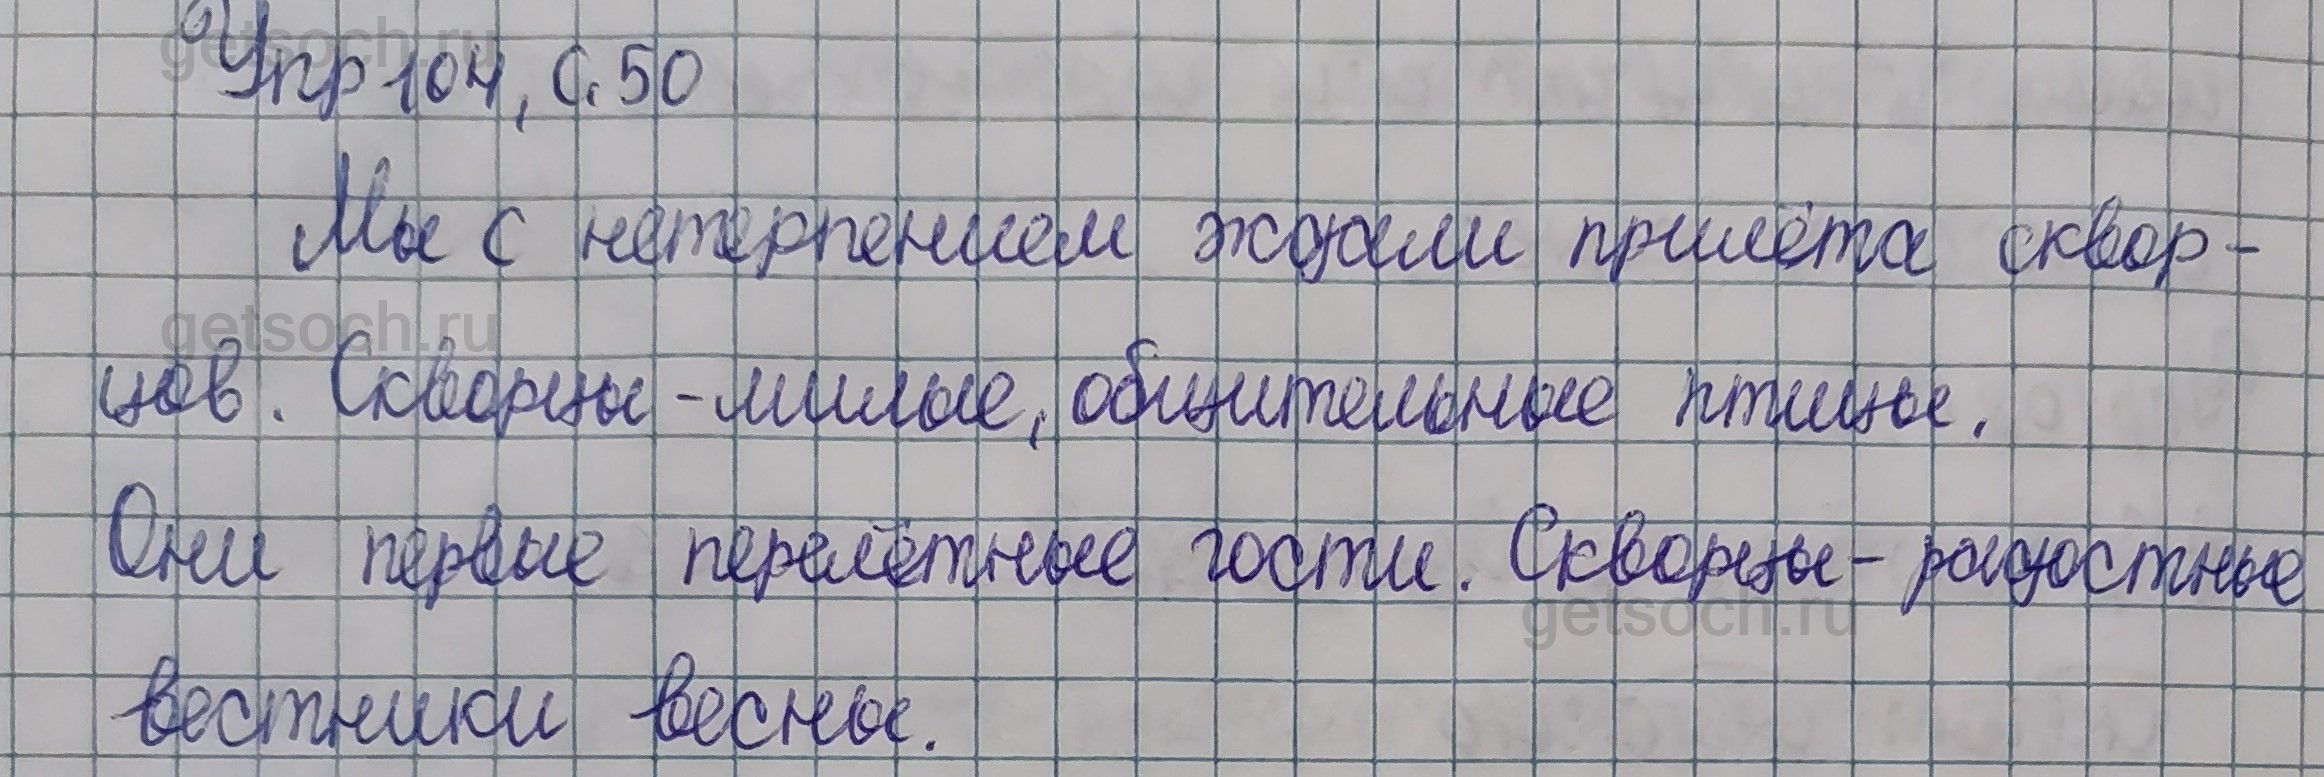 Упр 104, с. 50
Мы с нетерпением ждали прилёта сквор-
цов. Скворцы - милые, общительные птицы.
Они первые перелётные гости. Скворцы - радостные
вестники весны.
getsoch.ru
getsoch.ru
getsoch.ru